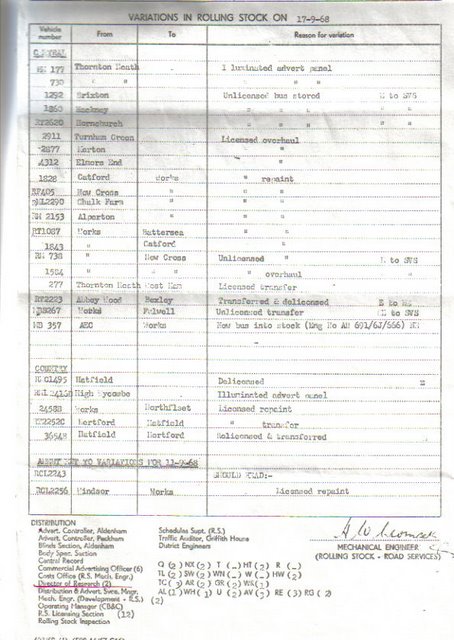 VARIATIONS IN ROLLING STOCK ON 17-9-68
Vehicle number From To Reason for variation
177 Thornton Heath Illuminated advert panel
730 " " " "
1292 Brixton Unlicensed bus stored E to SVS
1860 Hackney " " " "
RT2620 Hornchurch " " " "
2911 Turnham Green Licensed overhaul
2877 Merton " "
4312 Elmers End " "
1828 Catford Works " repaint
RF405 New Cross " " "
2290 Chalk Farm " " "
RM 2153 Alperton " " "
RT1087 Works Battersea "
1843 " Catford "
RM 738 " New Cross Unlicensed " E to SVS
1584 " " " " overhaul "
277 Thornton Heath West Ham Licensed transfer
RT2223 Abbey Wood Bexley Transferred & delicensed
8267 Works Fulwell Unlicensed transfer to SVS
MB 357 AEC Works New bus into stock (Eng No AH 691/6J/666)
COUNTRY
1495 Hatfield Delicensed E
High Wycombe Illuminated advert panel
2458B Works Northfleet Licensed repaint
2252C Hertford Hatfield " transfer
3654B Hatfield Hertford Relicensed & transferred
AMENDMENT KEY TO VARIATIONS FOR 11-9-68
RCL2243 SHOULD READ:-
RCL2256 Windsor Works Licensed repaint
DISTRIBUTION
Advert. Controller, Aldenham
Advert. Controller, Peckham
Blinds Section, Aldenham
Body Spec. Suction
Control Record
Commercial Advertising Officer (6)
Costs Office (R.S. Mech. Engr.)
Director of Research (2)
Distribution & Advert. Svce. Mngr.
Mech. Engr. (Development - R.S.) (2)
Operating Manager (CB&C)
R.S. Licensing Section (12)
Rolling Stock Inspection
Schedules Supt. (R.S.)
Traffic Auditor, Griffith House
District Engineers
Q (2) NX (2) T (_) HT (2) R (_)
TL (2) SW (2) WN (_) W (_) HW (2)
TC (3) AR (2) GR (2) WS (1)
AL (1) WH (1) U (2) AV (2) RE (3) RG (2)
MECHANICAL ENGINEER
(ROLLING STOCK - ROAD SERVICES)